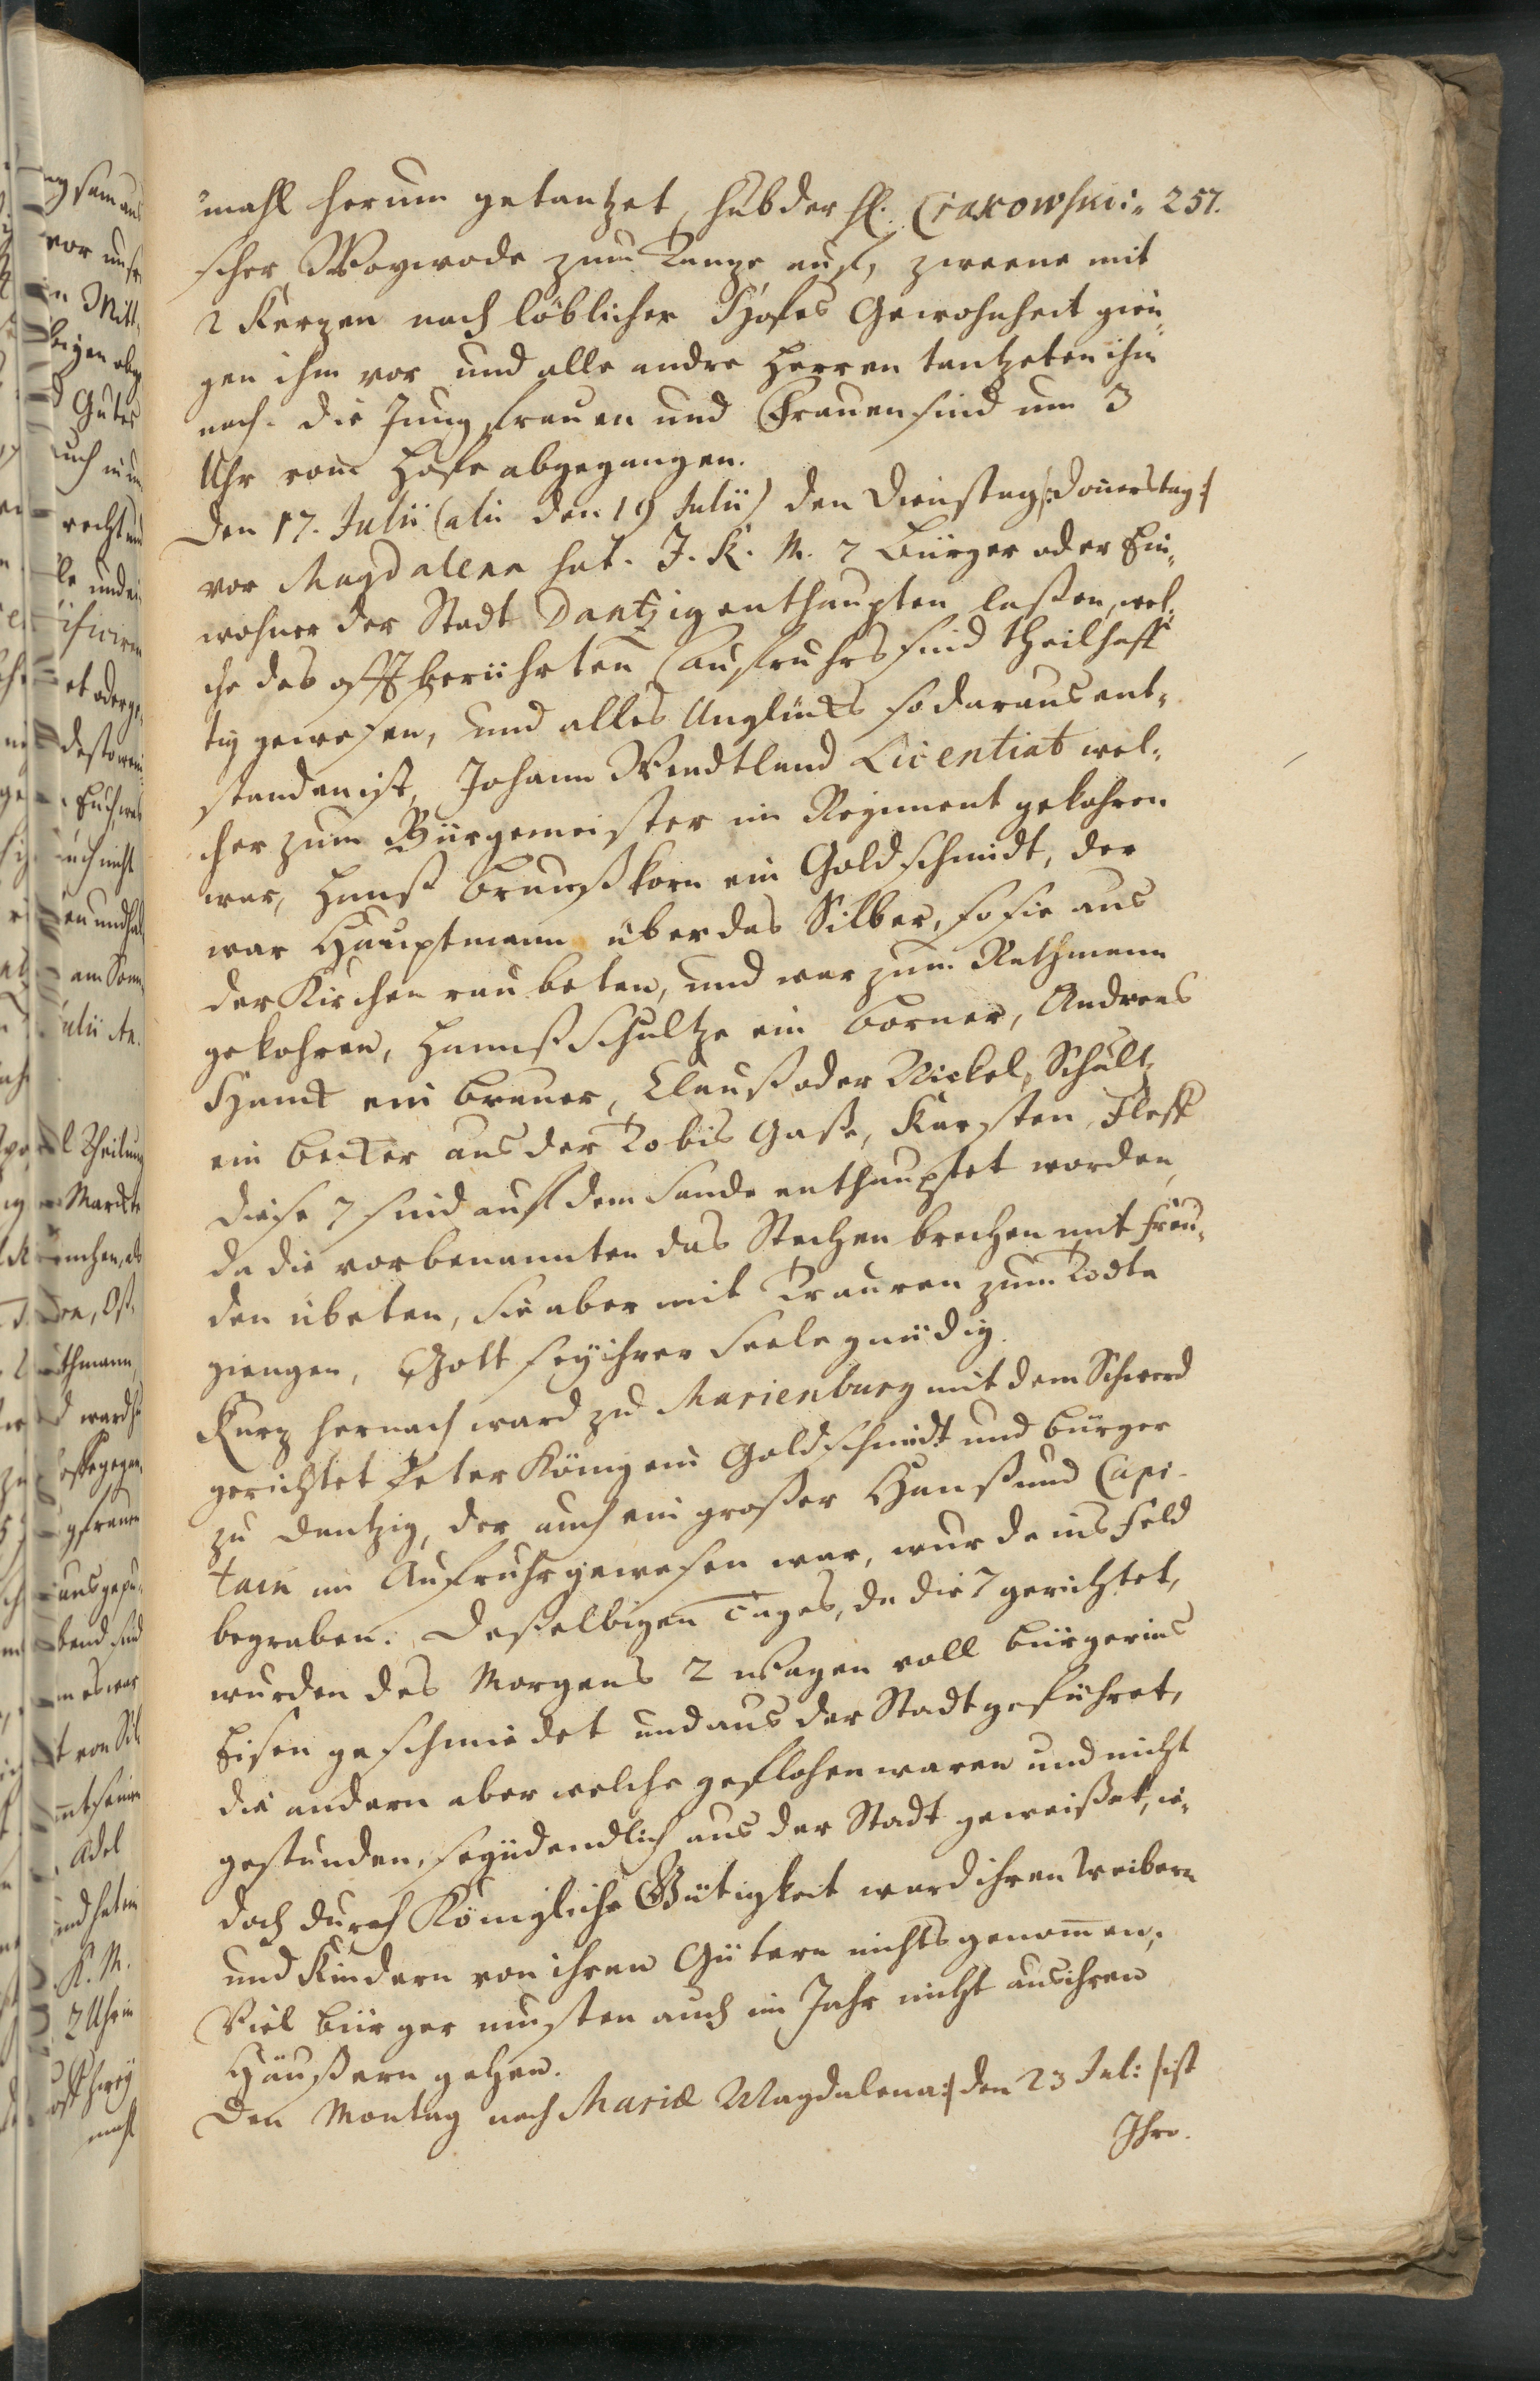 257.
mahl herum getantzet, hub der H. Crakowski-
scher Woywode zum Tanze auf, zweene mit
2 Kerzen nach löblicher Hofes Gewohnheit gien-
gen ihm vor und alle andre Herren tantzeten ihm
nach. die Jungfrauen und Frauen sind um 3
Uhr vom Hofe abgegangen.
Den 17. Julii (alii den 19 Julii) den Dienstag /:Donerstag:/
vor Magdalena hat J. K. M. 7 Bürger oder Ein-
wohner der Stadt Dantzig enthaupten laßen, wel-
che des offt berührten Aufruhrs sind theilhaff-
tig gewesen, und alles Unglücks so daraus ent-
standen ist, Johann Wendtland Licentiat wel-
cher zum Bürgemeister im Regiment gekohren
war, Hanß Braunßkorn ein Goldschmidt, der
war Hauptmann über das Silber, so sie aus
der Kirchen raubeten, und war zum Rathmann
gekohren, Hannß Schultze ein Borner, Andreas
Handt ein Brauer, Clauß oder Nickel, Schultz
ein Becker aus der Tobis Gaße, Karsten, Fleff
Diese 7 sind auf dem Sande enthauptet worden,
da die vorbenannten das Stechen brechen mit Freu-
den übeten, sie aber mit Trauren zum Todte
giengen, Gott sey ihrer Seele gnädig.
Kurz hernach ward zu Marienburg mit dem Schwerd
gerichtet Peter König ein Goldschmidt und Bürger
zu Dantzig, der auch ein großer Hanß und Capi-
tain im Aufruhr gewesen war, wurde ins Feld
begraben. Deßelbigen Tages, da die 7 gerichtet,
wurden des Morgens 2 Wagen voll Bürger ins
Eisen geschmiedet und aus der Stadt geführet,
die andern aber welche geflohen waren und nicht
gestunden, seynd endlich aus der Stadt geweißet, ie-
doch durch Königliche Gütigkeit ward ihren Weibern
und Kindern von ihren Gütern nichts genom̄en,
Viel Bürger musten auch im Jahr nicht aus ihren
Häußern gehen.
Den Montag nach Mariæ Magdalena /: den 23 Jul: / ist
Ihro.